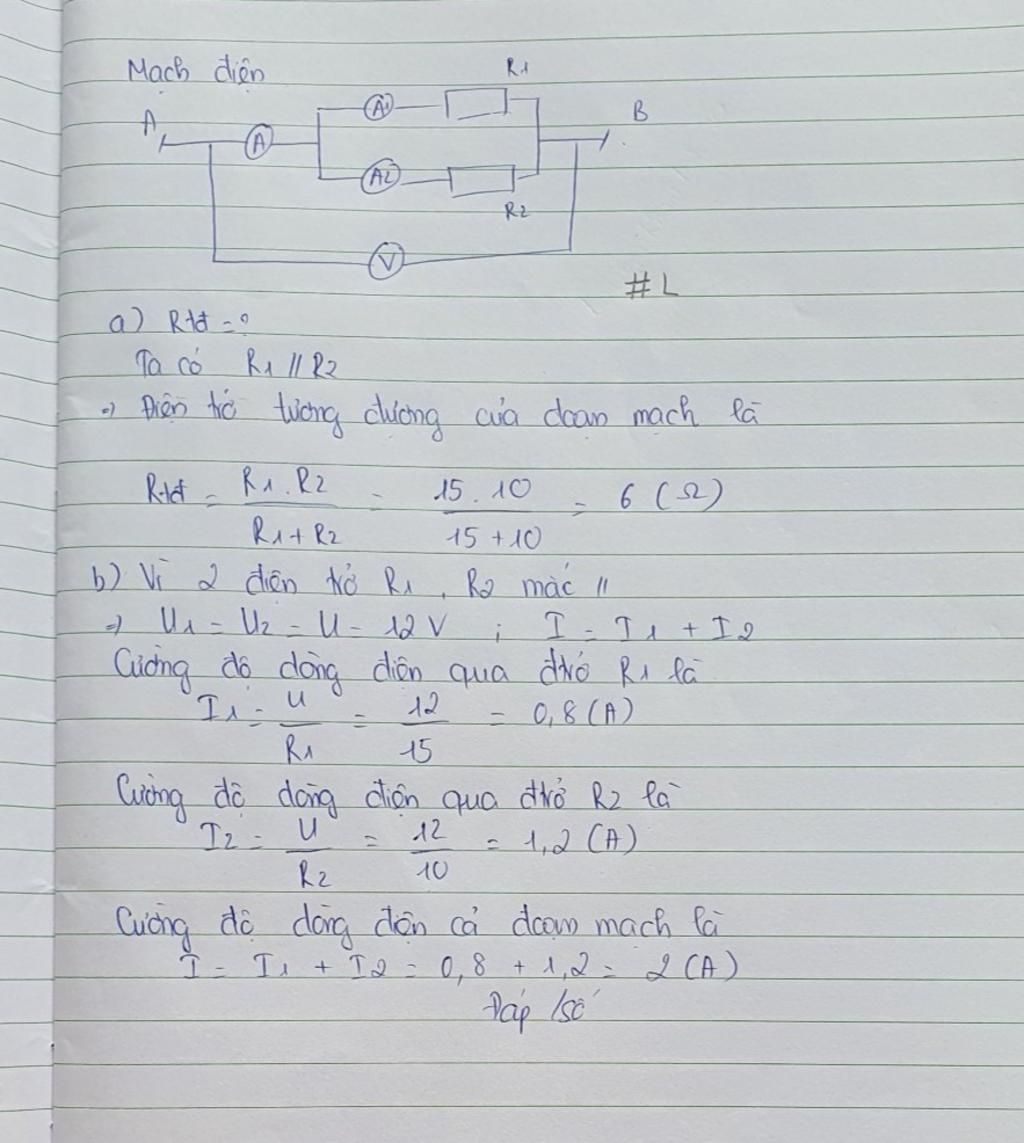 Mạch điện
R1
A
A1
B
A
A2
R2
V
#L
a) Rtđ = ?
Ta có R1 // R2
=> Điện trở tương đương của đoạn mạch là
Rtđ = R1 . R2 / R1 + R2 = 15 . 10 / 15 + 10 = 6 (Ω)
b) Vì 2 điện trở R1, R2 mắc //
=> U1 = U2 = U = 12 V ; I = I1 + I2
Cường độ dòng điện qua đtrở R1 là
I1 = U / R1 = 12 / 15 = 0,8 (A)
Cường độ dòng điện qua đtrở R2 là
I2 = U / R2 = 12 / 10 = 1,2 (A)
Cường độ dòng điện cả đoạn mạch là
I = I1 + I2 = 0,8 + 1,2 = 2 (A)
Đáp /số